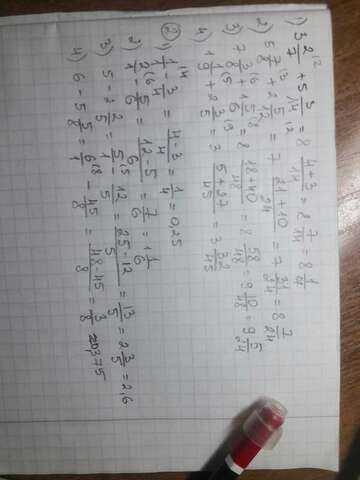 1) 3 2/7 + 5 3/14 = 8 4+3/14 = 8 7/14 = 8 1/4
2) 5 7/8 + 2 5/12 = 7 21+10/24 = 7 31/24 = 8 7/24
3) 7 3/8 + 5/6 = 8 18+40/48 = 8 58/48 = 9 10/48 = 9 5/24
4) 1 1/9 + 2 3/5 = 3 5+27/45 = 3 32/45
②
1) 1/1 - 3/4 = 4-3/4 = 1/4 = 0,25
2) 2/1 - 5/6 = 12-5/6 = 7/6 = 1 1/6
3) 5 - 2 2/5 = 5/1 - 12/5 = 25-12/5 = 13/5 = 2 3/5 = 2,6
4) 6 - 5 5/8 = 6/1 - 45/8 = 48-45/8 = 3/8